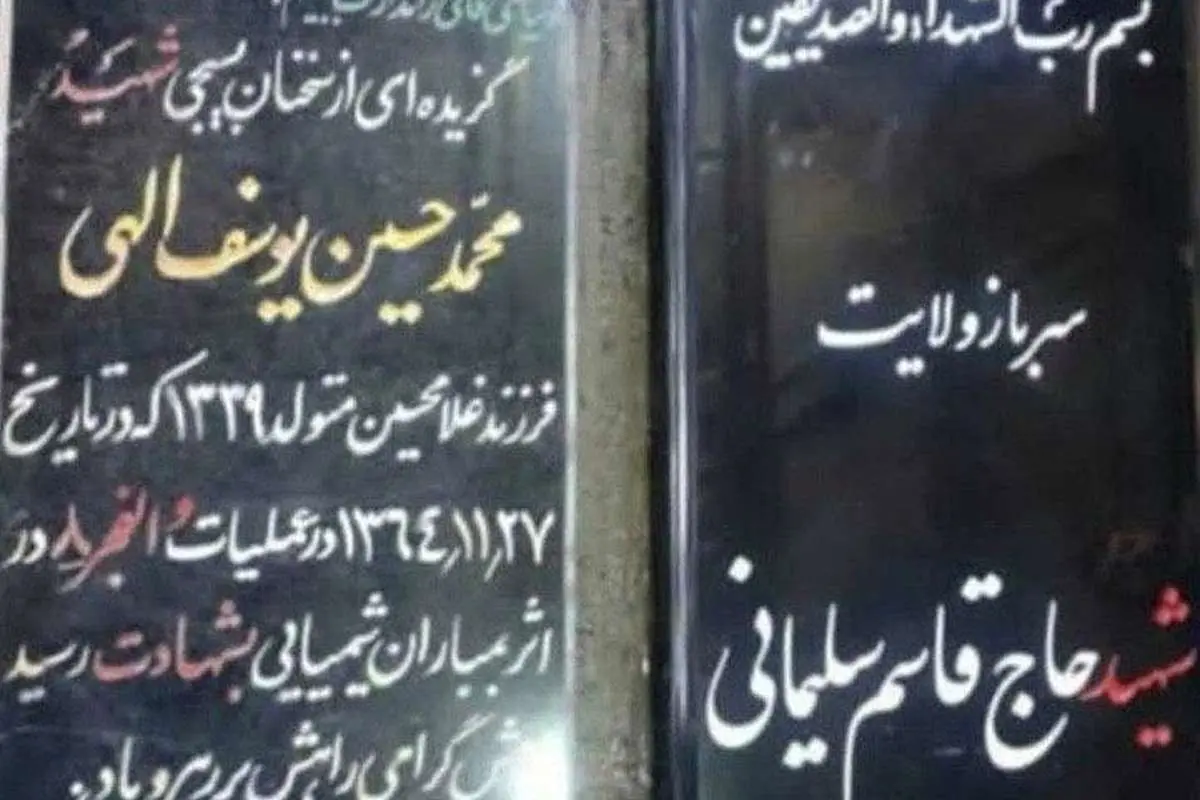 بسم رب الشهداء والصدیقین
سرباز ولایت
شهید حاج قاسم سلیمانی
گزیده ای از سخنان بسیجی شهید
محمّد حسین یوسف الهی
فرزند غلامحسین متولد ۱۳۳۹ که در تاریخ
۱۳٦٤,۱۱,۲۷ در عملیات والفجر ۸ در
اثر بمباران شیمیایی بشهادت رسید
گرامی راهش پر رهرو باد.